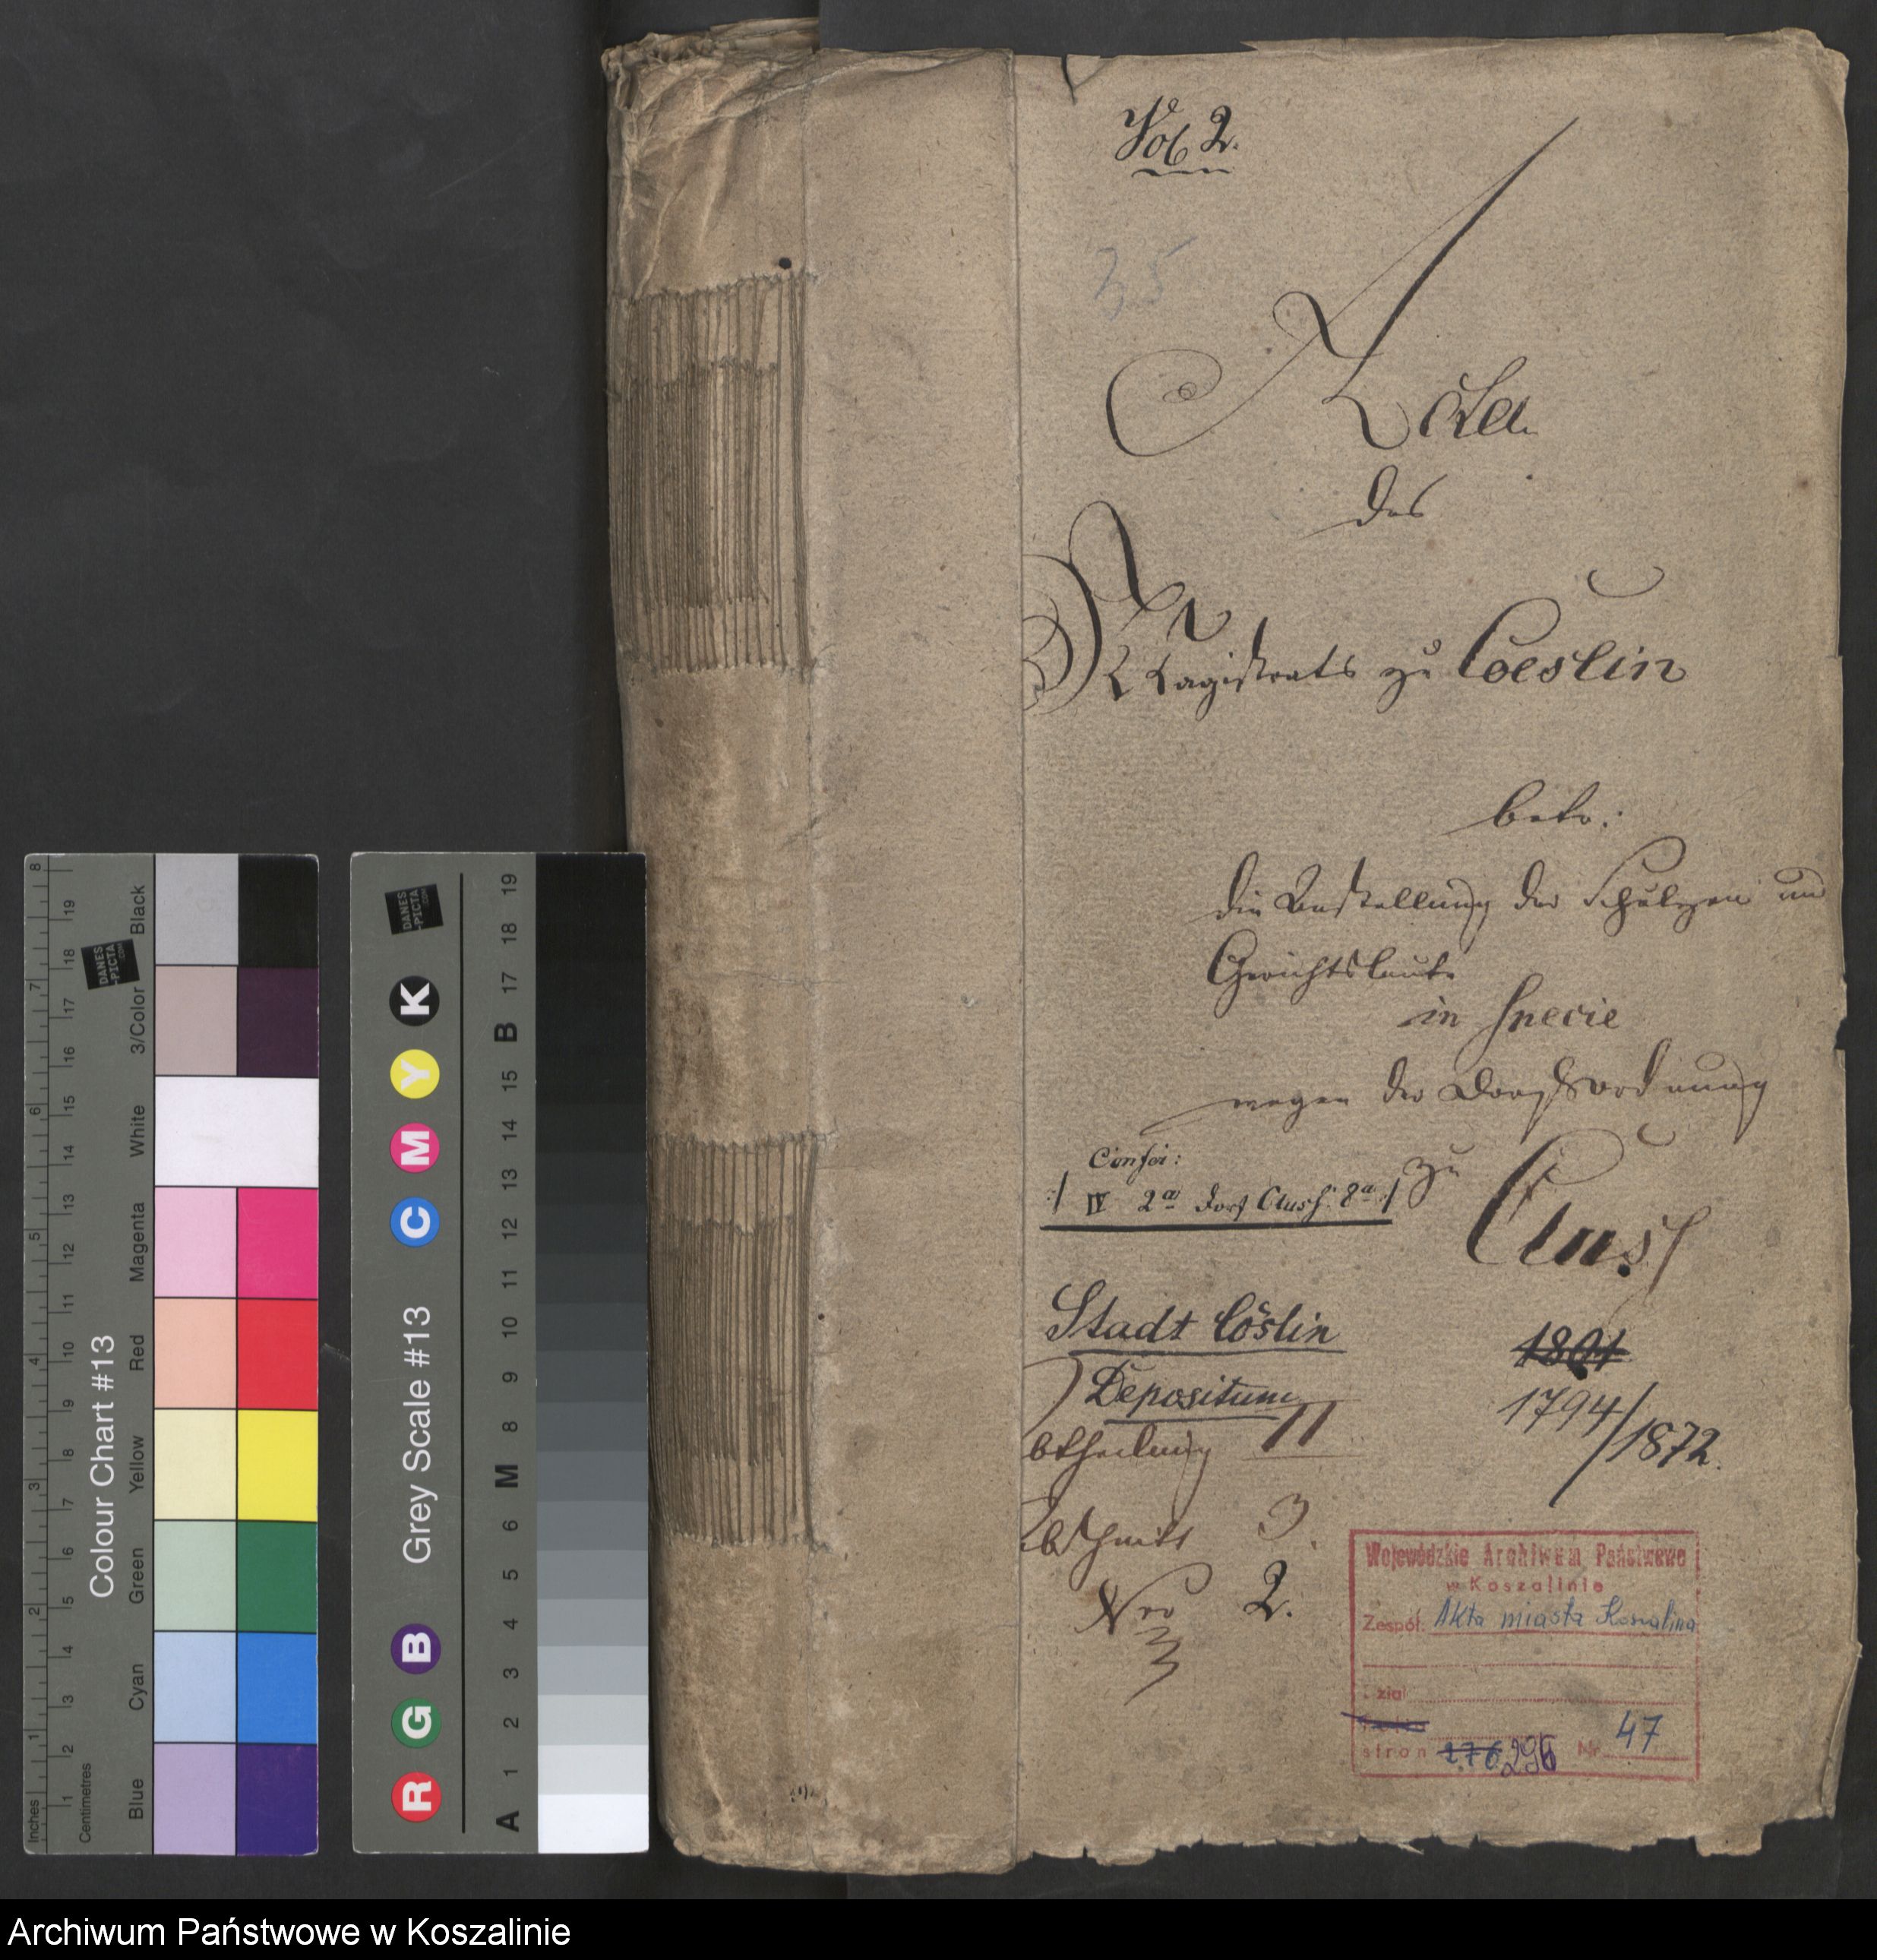 Vol 2.
35
Acta
des
Magistrats zu Coeslin
betr:
die Bestellung der Schulzen und
Gerichtsleute
in Specie
wegen der Dorfsordnung
zu Clus
1801
1794/1872.
IV 2a dorf Clus. 8a
Stadt Cöslin
Depositum
btheilung II
bschnitt 3.
Nro 2.
Wojewódzkie Archiwum Państwowe
w Koszalinie
Zespół: Akta miasta Koszalina
stron 276 296 Nr. 47
Inches
1 2 3 4 5 6 7 8
Centimetres
1 2 3 4 5 6 7 8 9 10 11 12 13 14 15 16 17 18 19
Colour Chart #13
DANES
PICTA
.COM
Blue Cyan Green Yellow Red Magenta White 3/Color Black
R G B Grey Scale #13 C M Y K
DANES
PICTA
.COM
A 1 2 3 4 5 6 M 8 9 10 11 12 13 14 15 B 17 18 19
Archiwum Państwowe w Koszalinie